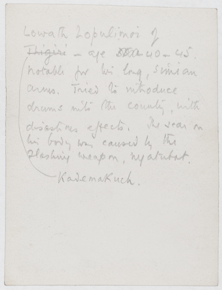 Lowoth Lopulimoi of
– age 40-45.
notable for his long, simian
arms. Tried to introduce
drums into the county, with
disastrous effects. The scar on
his body was caused by the
slashing weapon, nyatubat.
Kadamakuch.